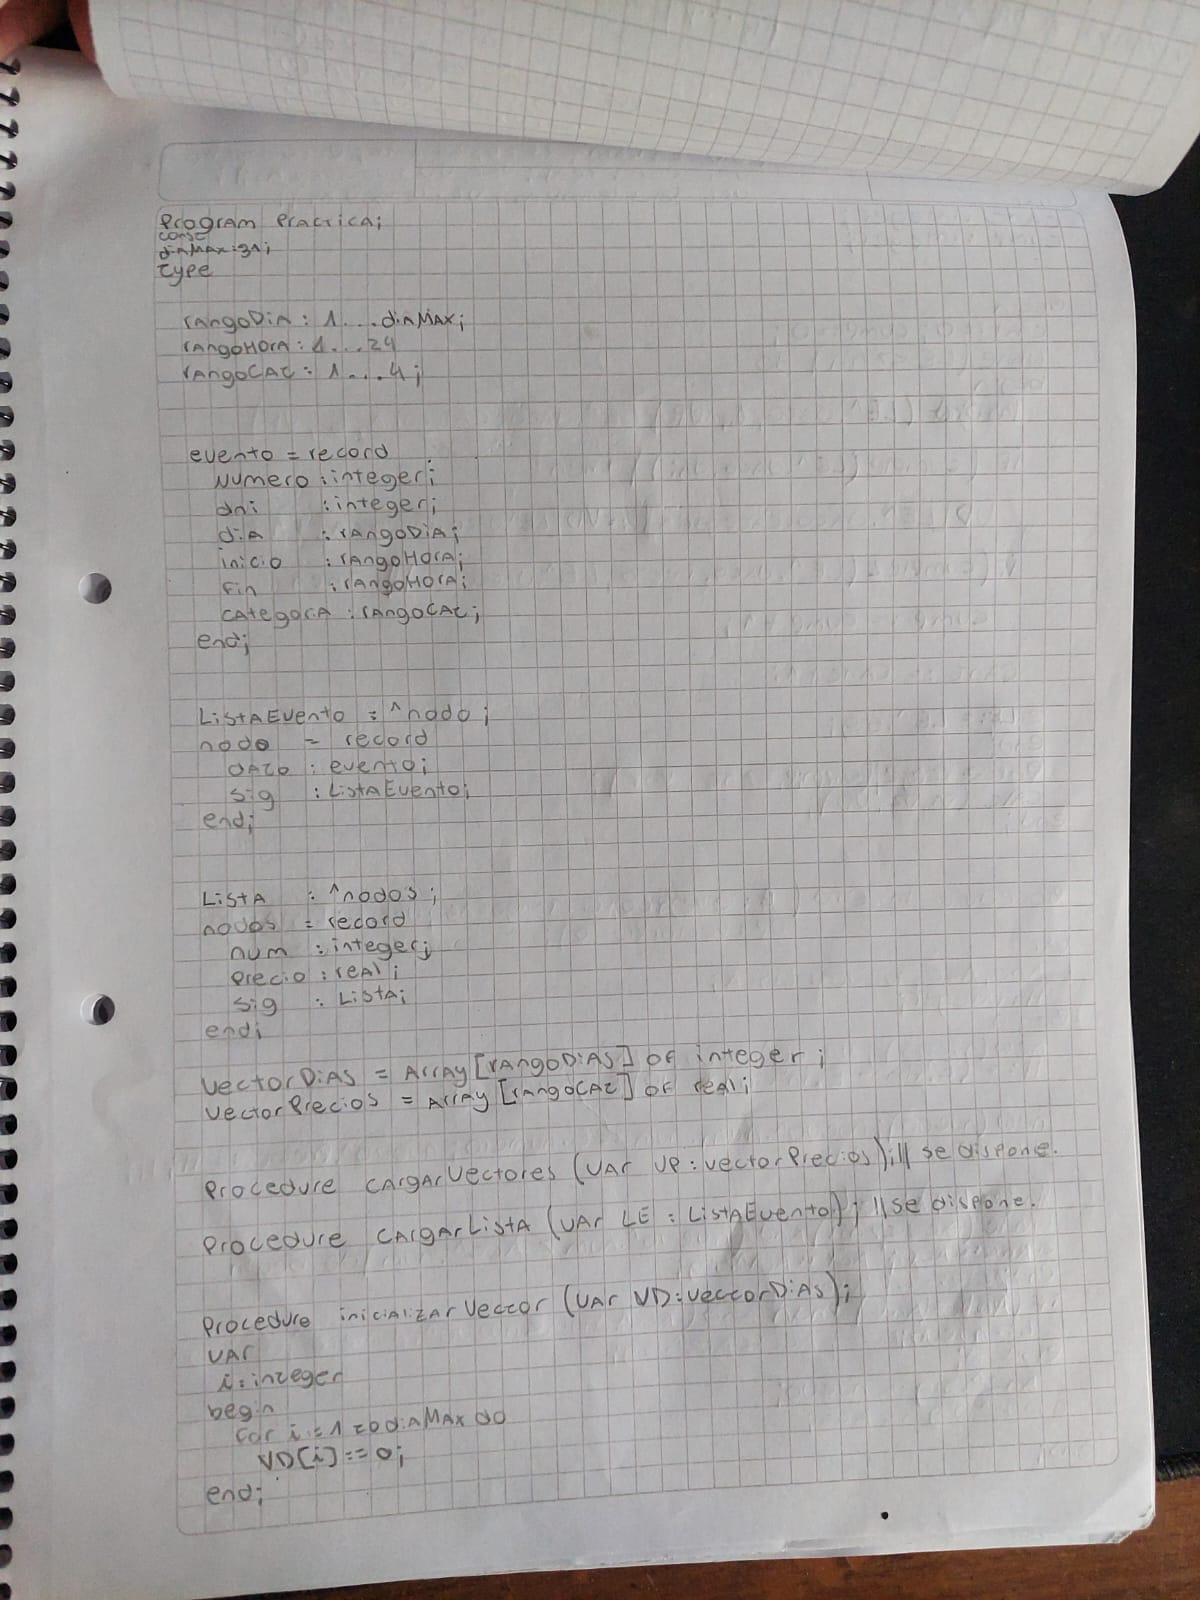 Program Practica;
const
diaMax:31;
type
rangoDia : 1...diaMAX;
rangoHora : 1...24
rangoCat : 1...4;
evento = record
Numero : integer;
dni : integer;
dia : rangoDia;
inicio : rangoHora;
fin : rangoHora;
categoria : rangoCat;
end;
ListaEvento = ^nodo;
nodo = record
dato : evento;
sig : ListaEvento;
end;
Lista : ^nodos;
nodos = record
num : integer;
precio : real;
sig : Lista;
end;
vectorDias = Array[rangoDias] of integer;
vectorPrecios = Array [rangoCat] of real;
Procedure cargarVectores (var vp : vectorPrecios); // se dispone.
Procedure cargarLista (var LE : ListaEvento); // se dispone.
Procedure inicializarVector (var VD : vectorDias);
var
i : integer
begin
for i := 1 to diaMax do
VD[i] := 0;
end;